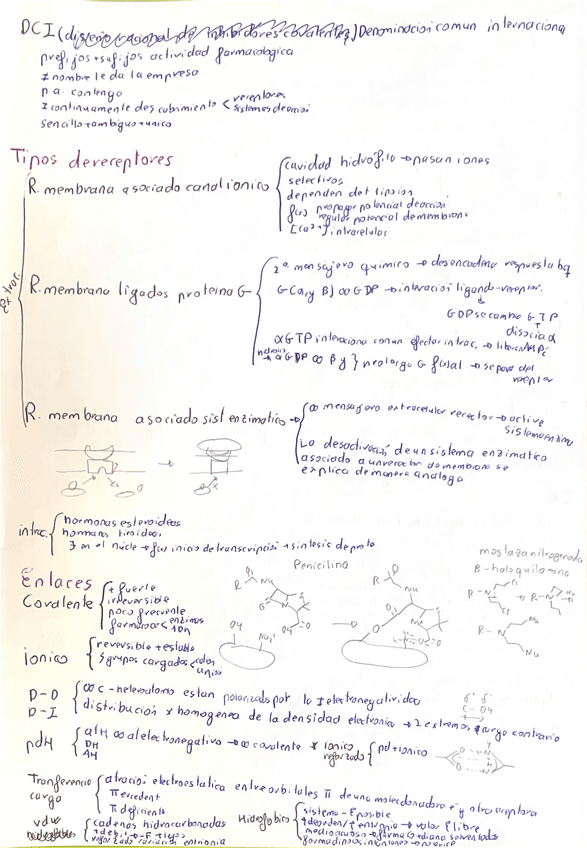 DCI Denominacion comun internacional
prefijos + sufijos actividad farmacologica
≠ nombre le da la empresa
p a. contengo
continuamente descubrimiento < receptores
sistemas de accion
sencillo + ambiguo + unico
Tipos de receptores
extrac.
R. membrana asociado canal ionico
cavidad hidrofilo → pasan iones
selectivos
dependen del tipo ion
f(x) propagar potencial de accion
regular potencial de membrana
[Ca2+] intracelular
R. membrana ligados proteina G
2º mensajero quimico → desencadena respuesta bq
G(α y β) ∞ GDP → interaccion ligando-receptor.
GDP se cambia GTP
disocia α
αGTP interaciona con un efector intrac. → libera AMPc
αGDP ∞ βγ } prot G f(x)al → separa del
receptor
R. membrana asociado sist enzimatico →
∞ mensajero extracelular receptor → active
sistema enzim
La desactivación de un sistema enzimatico
asociado a un receptor de membrana se
explica de manera analoga
intrac.
hormonas esteroideas
hormonas tiroideas
en el nucleo → f(x) inicio de transcripcion + sintesis de prote
Enlaces
Penicilina
mostaza nitrogenada
β-haloquilamina
Covalente
+ fuerte
irreversible
poco frecuente
farmacos < enzimas
ADN
ionico
reversible + estable
grupos cargados
D-D
D-I
∞ C-heteroatomo estan polarizados por la electronegatividad
distribución homogenea de la densidad electronica → 2 extremos cargo contrario
pdH
at H ∞ at electronegativo → ∞ covalente
DH
AH
ionico
reforzado
pd + ionico
Tranferencia
cargo
atracció electrostatica entre orbitales π de una mol donadora e- y otra aceptora
π excedent
π deficiente
vdw
cadenas hidrocarbonadas
+ debil
Hidrofobico
sistema - E posible
↑ desorden / ↑ entropia → valor E libre